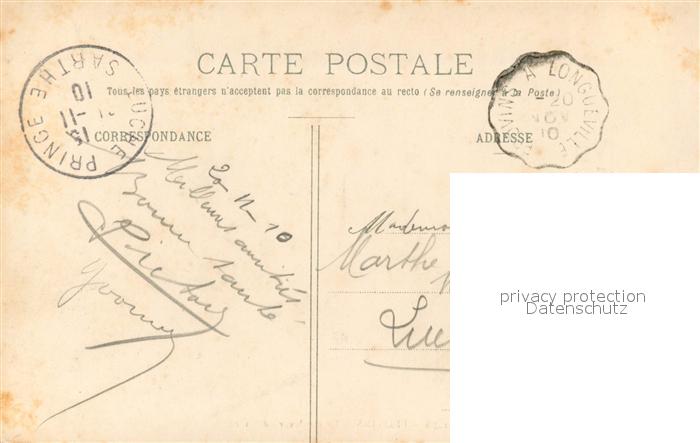 CARTE POSTALE
Tous les pays étrangers n'acceptent pas la correspondance au recto (Se renseigner à la Poste)
CORRESPONDANCE
ADRESSE
PRINGE LUCE SARTHE
10
A LONGUEVILLE
20
NOV
10
20-11-10
Meilleures amitiés
Bonne santé
Yvonne
Mademoi
Marthe
Luc
privacy protection
Datenschutz